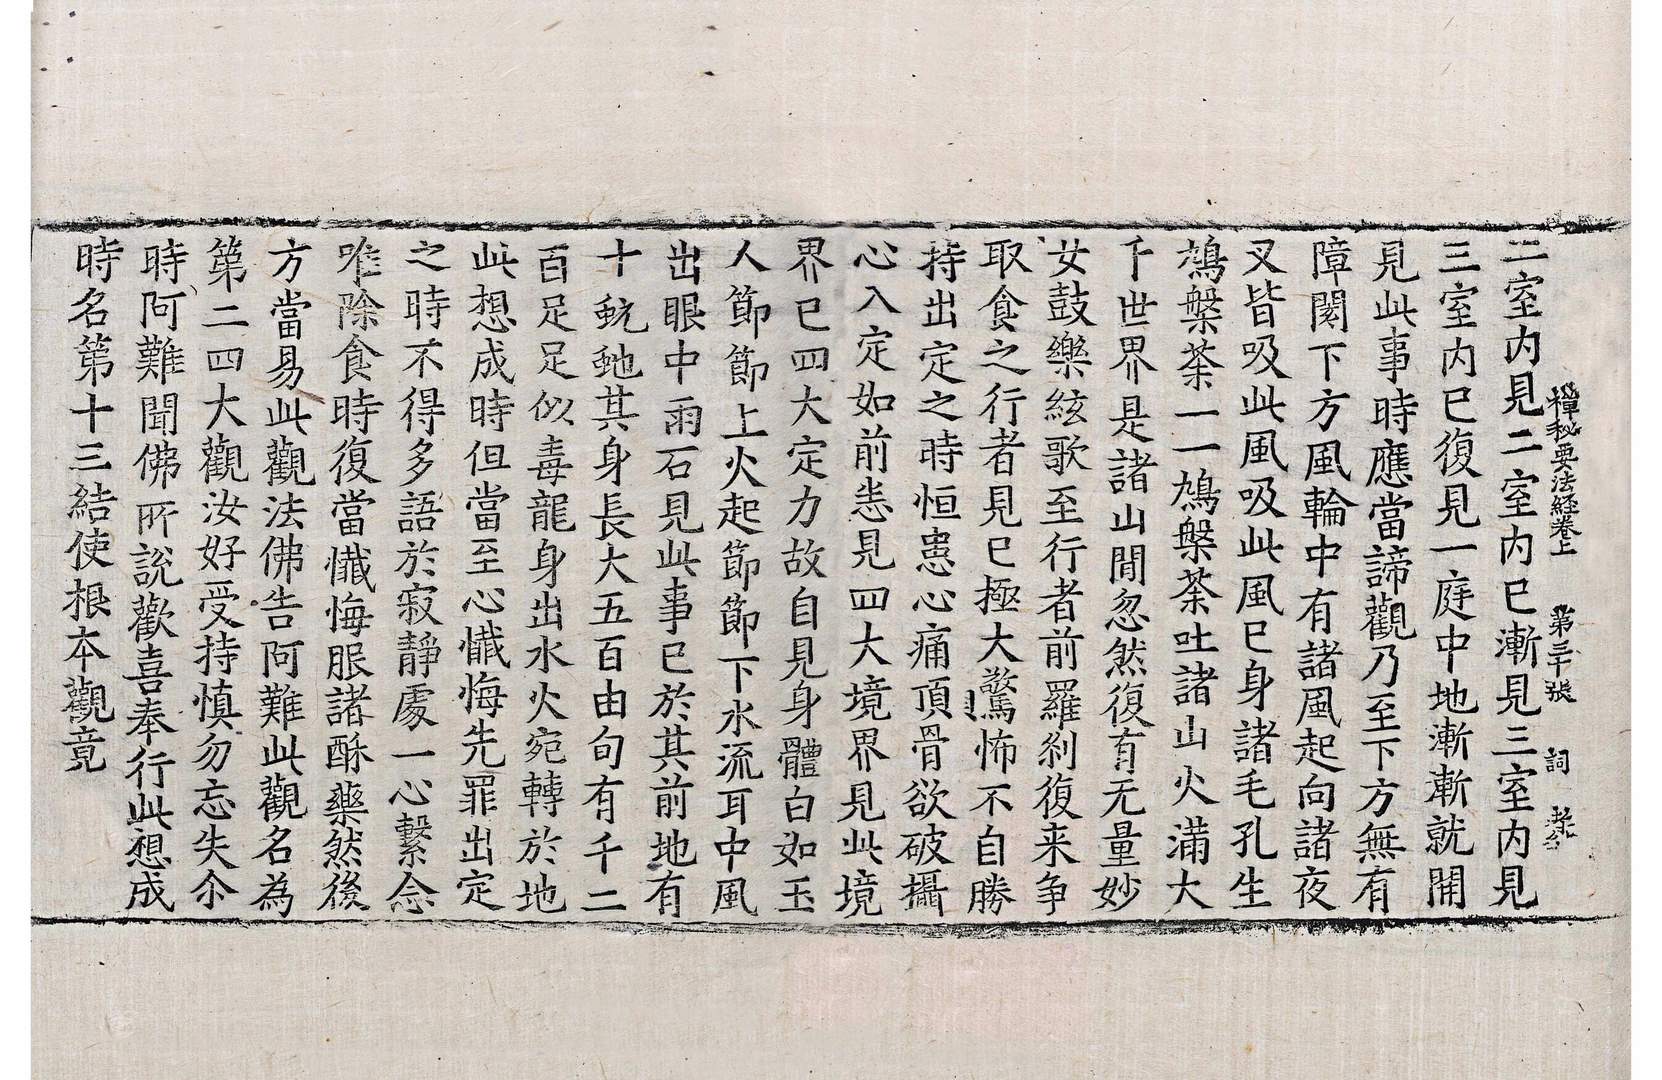 禪秘要法經卷上　第三十號　詞
二室内見二室内已漸見三室内見
三室内已復見一庭中地漸漸就開
見此事時應當諦觀乃至下方無有
障閡下方風輪中有諸風起向諸夜
叉皆吸此風吸此風已身諸毛孔生
鳩槃荼一一鳩槃荼吐諸山火滿大
千世界是諸山間忽然復有无量妙
女鼓樂絃歌至行者前羅刹復来争
取食之行者見已極大驚怖不自勝
持出定之時恒患心痛頂骨欲破攝
心入定如前恙見四大境界見此境
界已四大定力故自見身體白如玉
人節節上火起節節下水流耳中風
出眼中雨石見此事已於其前地有
十蚖虵其身長大五百由旬有千二
百足足似毒龍身出水火宛轉於地
此想成時但當至心懺悔先罪出定
之時不得多語於寂靜處一心繫念
唯除食時復當懺悔服諸酥藥然後
方當易此觀法佛告阿難此觀名為
第二四大觀汝好受持慎勿忘失尒
時阿難聞佛所說歡喜奉行此想成
時名第十三結使根本觀竟